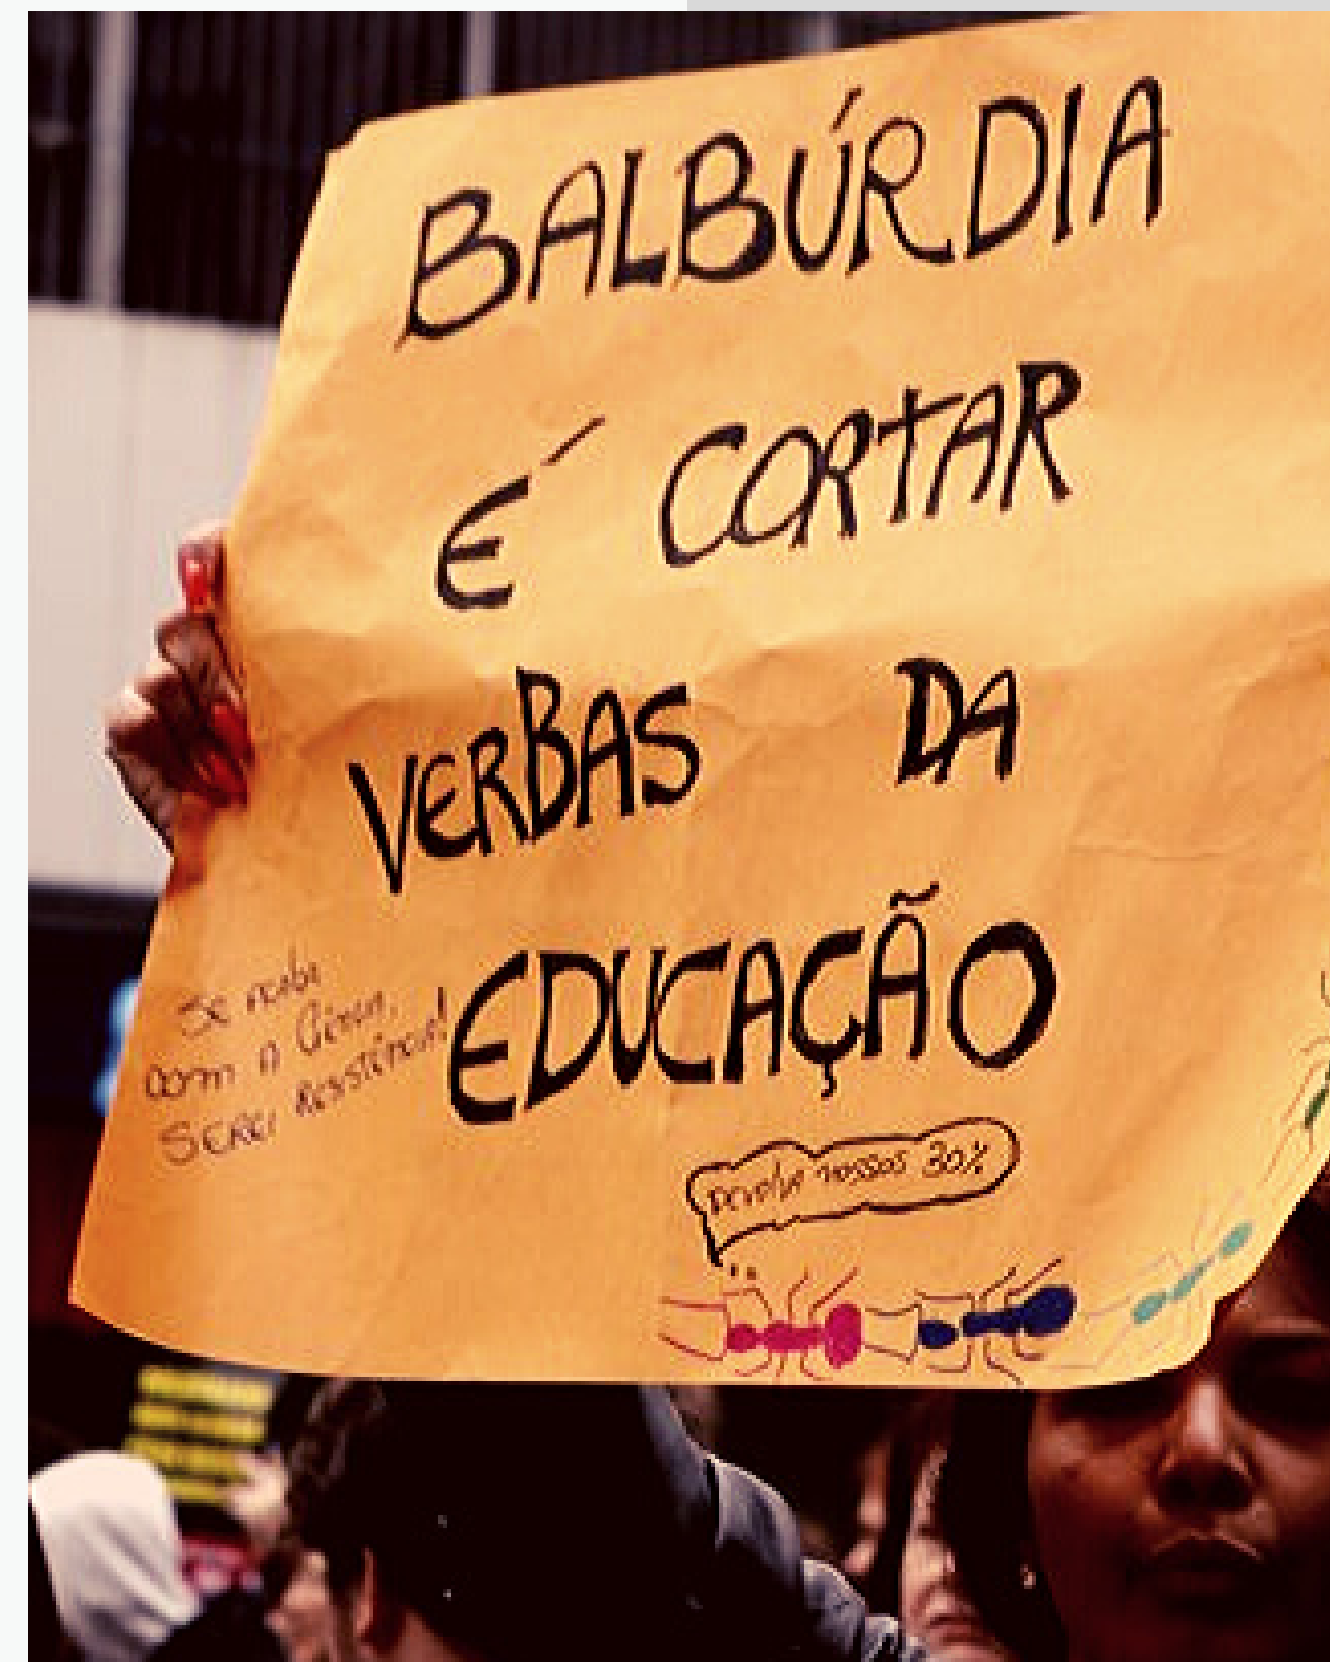 BALBÚRDIA
É CORTAR
VERBAS DA
EDUCAÇÃO
Se
com a
SEREI Resistência!
Devolva nossos 30%